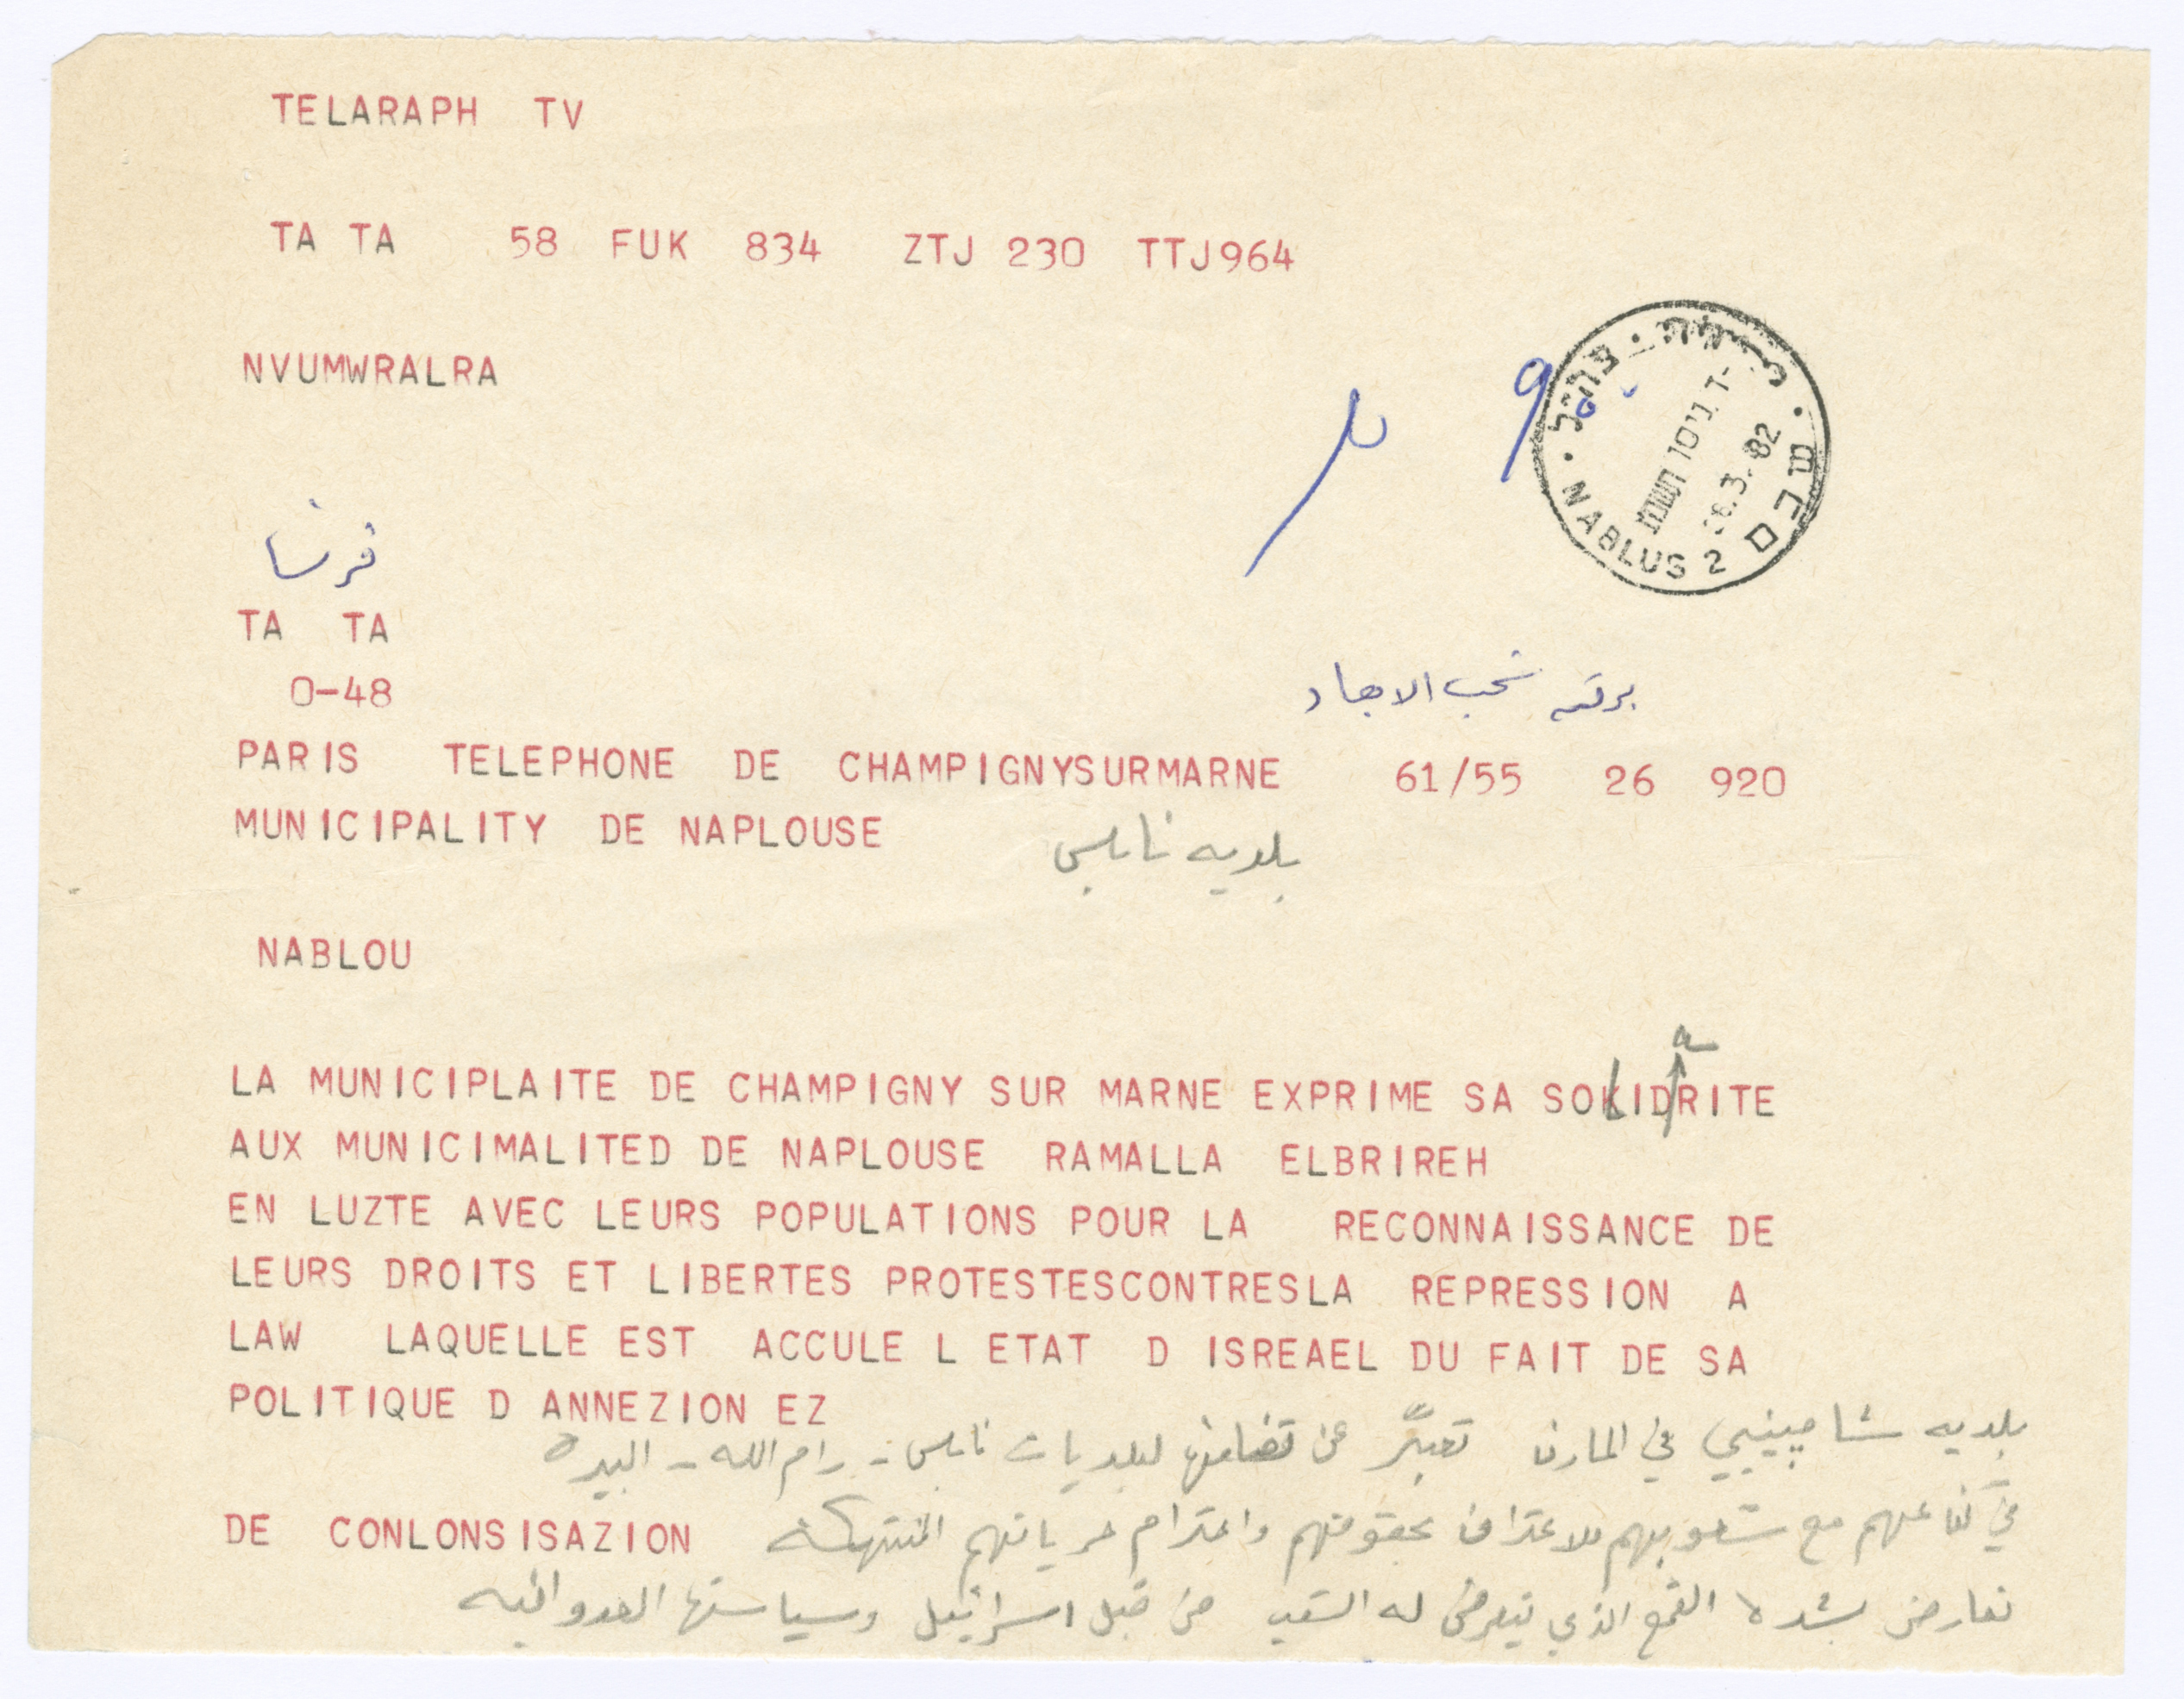 TELARAPH TV
TA TA 58 FUK 834 ZTJ 230 TTJ964
NVUMWRALRA
צה"ל
שכם
-ד ניסן תשמב
6.3.82
NABLUS 2
فرنسا
TA TA
0-48
برقيه شجب الابعاد
PARIS TELEPHONE DE CHAMPIGNYSURMARNE 61/55 26 920
MUNICIPALITY DE NAPLOUSE بلديه نابلس
NABLOU
a
LA MUNICIPLAITE DE CHAMPIGNY SUR MARNE EXPRIME SA SOLIDRITE
AUX MUNICIMALITED DE NAPLOUSE RAMALLA ELBRIREH
EN LUZTE AVEC LEURS POPULATIONS POUR LA RECONNAISSANCE DE
LEURS DROITS ET LIBERTES PROTESTESCONTRESLA REPRESSION A
LAW LAQUELLE EST ACCULE L ETAT D ISREAEL DU FAIT DE SA
POLITIQUE D ANNEZION EZ
بلديه شامبيني في المارن تعبّر عن تضامنها لبلديات نابلس - رام الله - البيره
DE CONLONSISAZION في كفاحهم مع شعوبهم للاعتراف بحقوقهم واحترام حرياتهم المنتهكه
تعارض بشده القمع الذي يتعرض له الشعب من قبل اسرائيل وسياستها العدوانيه